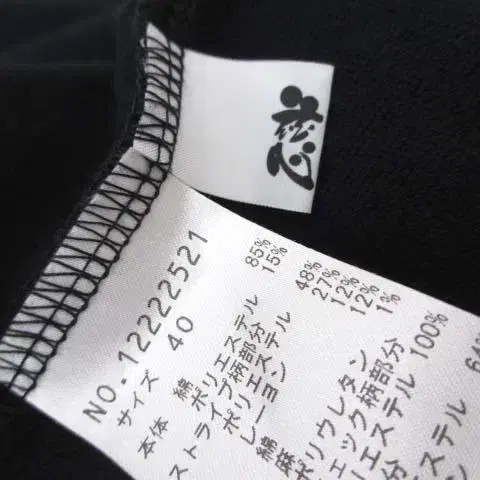 NO-12222521
サイズ 40
本体 綿 85%
ポリエステル 15%
ストライプ柄部分
ポリエステル 48%
レーヨン 27%
綿 12%
麻 12%
ポリウレタン 1%
チェック柄部分
ポリエステル 100%